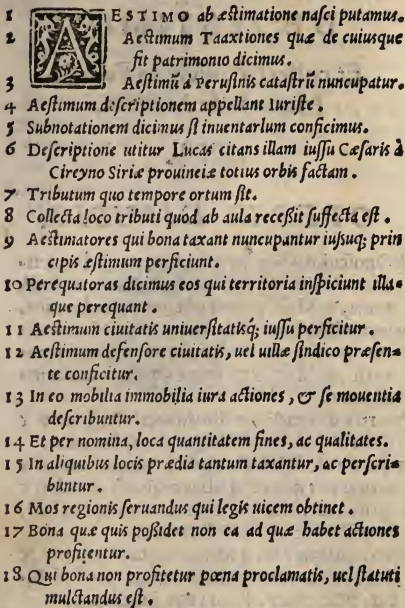 1 AESTIMO ab æstimatione nasci putamus.
2 Aestimum Taaxtiones quæ de cuiusque
fit patrimonio dicimus.
3 Aestimũ à Perusinis catastrũ nuncupatur.
4 Aestimum descriptionem appellant Iuriste.
5 Subnotationem dicimus si inuentarium conficimus.
6 Descriptione utitur Lucas citans illam iussu Cæsaris à
Cireyno Siriæ prouineiæ totius orbis factam.
7 Tributum quo tempore ortum sit.
8 Collecta loco tributi quòd ab aula recessit suffecta est.
9 Aestimatores qui bona taxant nuncupantur iusuq; prin
cipis æstimum perficiunt.
10 Perequatoras dicimus eos qui territoria inspiciunt illa=
que perequant.
11 Aestimum ciuitatis uniuersitatisq; iussu perficitur.
12 Aestimum defensore ciuitatis, uel uillæ sindico præsen=
te conficitur.
13 In eo mobilia immobilia iura actiones, & se mouentia
describuntur.
14 Et per nomina, loca quantitatem fines, ac qualitates.
15 In aliquibus locis prædia tantum taxantur, ac perscri=
buntur.
16 Mos regionis seruandus qui legis uicem obtinet.
17 Bona quæ quis possidet non ea ad quæ habet actiones
profitentur.
18 Qui bona non profitetur pœna proclamatis, uel statuti
mulctandus est.